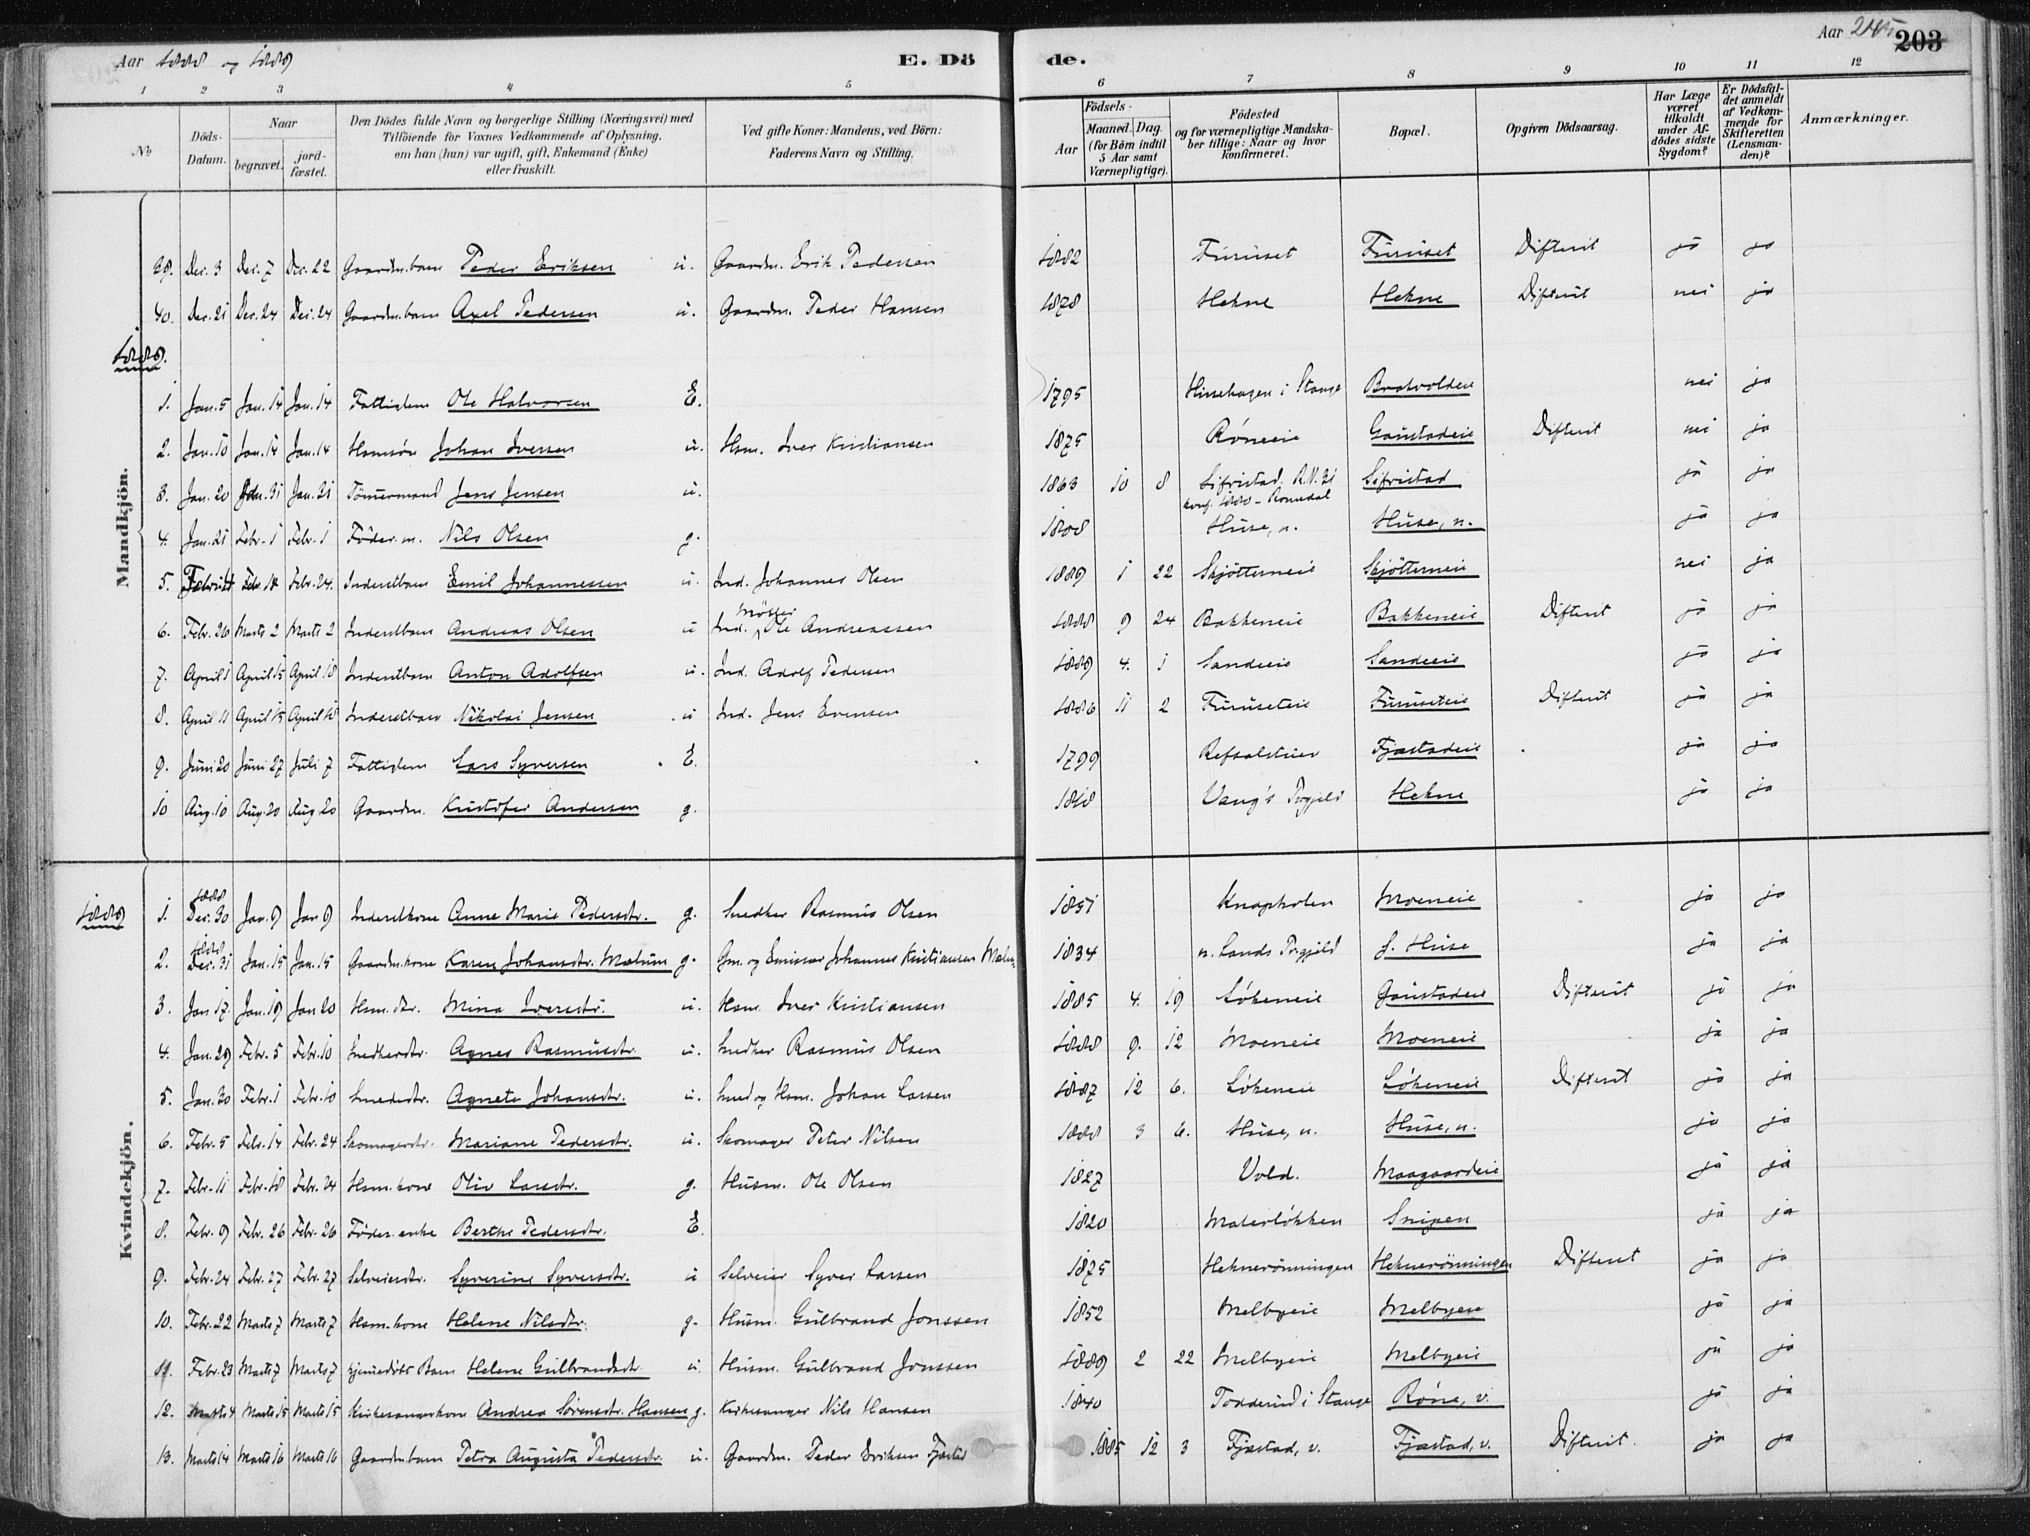 Aar 1888 og 1889 E. Dö de. Aar 245 203
1 2 3 4 5 6 7 8 9 10 11 12
No
Döds-Datum.
Naar
begravet.
jord-fæstet.
Den Dödes fulde Navn og borgerlige Stilling (Næringsvei) med
Tilföiende for Voxnes Vedkommende af Oplysning,
om han (hun) var ugift, gift, Enkemand (Enke)
eller fraskilt.
Ved gifte Koner: Mandens, ved Börn:
Faderens Navn og Stilling.
Födsels-
Aar
Maaned. Dag.
(for Börn indtil
5 Aar samt
Værnepligtige).
Födested
og for værnepligtige Mandska-
ber tillige: Naar og hvor
konfirmeret.
Bopæl.
Opgiven Dödsaarsag.
Har Læge
været
tilkaldt
under Af-
dödes sidste
Sygdom?
Er Dödsfal-
det anmeldt
af Vedkom-
mende for
Skifteretten
(Lensman-
den)?
Anmærkninger.
Mandkjön.
39. Dec. 3 Dec. 7 Dec. 22 Gaardm.barn Peder Eriksen u. Gaardm. Erik Pedersen 1882 Furuset Furuset Difterit ja ja
40. Dec. 21 Dec. 24 Dec. 24 Gaardm.barn Axel Pedersen u. Gaardm. Peder Hansen 1878 Hekne Hekne Difterit nei ja
1889.
1. Jan. 5 Jan. 14 Jan. 14 Fattiglem Ole Halvorsen E. 1795 Hinsehagen i Stange Brakvolden nei ja
2. Jan. 10 Jan. 14 Jan. 14 Hsmsön Johan Iversen u. Hsm. Iver Kristiansen 1875 Röneeie Gaustadeie Difterit nei ja
3. Jan. 20 Jan. 31 Jan. 31 Tömmermand Jens Jensen u. 1863 10 8 Sifristad R.N. 21 Sifristad ja ja
konf. 1880 - Romedal
4. Jan. 21 Febr. 1 Febr. 1 Föder.m. Nils Olsen g. 1808 Huse, n. Huse, n. ja ja
5. Febr. 24. Inderstbarn Emil Johannessen u. Ind. Johannes Olsen 1889 1 22 Skjötterneie Skjötterneie nei ja
6. Febr. 26 Marts 2 Marts 2 Inderstbarn Andreas Olsen u Ind. Möller Ole Andreassen 1888 9 24 Bakkeneie Bakkeneie Difterit ja ja
7. April 1 April 15 April 18 Inderstbarn Anton Adolfsen u. Ind. Adolf Pedersen 1889 4. 1 Sandeeie Sandeeie ja ja
8. April 11 April 15 April 18 Inderstbarn Nikolai Jensen u Ind. Jens Evensen 1886 11 2 Furuseteie Furuseteie Difterit ja ja
9. Juni 20 Juni 27 Juli 7 Fattiglem Lars Syversen E. 1799 Refsalstuen Fjæstadeie ja ja
10 Aug. 10 Aug. 20 Aug. 20 Gaardm. Kristofer Andersen g. 1818 Vang's Prgjeld Hekne ja ja
Kvindekjön.
1889
1. 1888 Dec. 30 Jan. 9 Jan 9 Inderstkone Anne Marie Pedersdtr. g. Snedker Rasmus Olsen 1851 Knapholen Moeneie ja ja
2. 1888 Dec. 31 Jan. 15 Jan. 15 Gaardm.kone Karen Johansdtr. Mælum g. Gm. og Emissær Johannes Kristiansen Mælum 1834 n. Lands Prgjeld s. Huse ja ja
3. Jan 17. Jan. 19 Jan 20 Hsm.dtr. Mina Iversdtr. u. Hsm. Iver Kristiansen 1885 4. 19 Lökeneie Gaustadeie Difterit ja ja
4. Jan. 29 Febr. 5 Febr. 10 Snedkerdtr. Agnes Rasmusdtr. u. Snedker Rasmus Olsen 1888 9. 12 Moeneie Moeneie ja ja
5. Jan. 30 Febr. 1 Febr. 10 Smededtr. Agnete Johansdtr. u. Smed og Hsm. Johan Larsen 1887 12 6. Lökeneie Lökeneie Difterit ja ja
6. Febr. 5 Febr. 14 Febr. 24 Skomagerdtr. Mariane Pedersdtr. u. Skomager Peter Nilsen 1888 3 6. Huse, n. Huse, n. ja ja
7. Febr. 11 Febr. 18 Febr. 24 Hsm.kone Oliv Larsdtr. g. Husm. Ole Olsen 1827 Vold. Maagaardeie ja ja
8. Febr. 9 Febr. 26 Febr. 26 Föder.enke Berthe Pedersdtr. E. 1820 Materlökken Snipen ja ja
9. Febr. 24 Febr. 27 Febr. 27 Selveierdtr. Syverine Syversdtr. u Selveier Syver Larsen 1875 Heknerönningen Heknerönningen Difterit ja ja
10. Febr. 22 Marts 7 Marts 7 Hsm.kone Helene Nilsdtr. g. Husm. Gulbrand Jonssen 1852 Melbyeie Melbyeie ja ja
11. Febr. 23 Marts 7 Marts 7 hjemedöbt Barn Helene Gulbrandsdtr. u. Husm. Gulbrand Jonssen 1889 2 22 Melbyeie Melbyeie ja ja
12. Marts 4 Marts 15 Marts 15 Kirkesangerkone Andrea Sörensdtr. Hansen g. Kirkesanger Nils Hansen 1840 Todderud i Stange Röne, v. ja ja
13. Marts 14 Marts 16 Marts 16 Gaardm.barn Petra Augusta Pedersdtr. u. Gaardm. Peder Eriksen Fjæstad 1885 12 3 Fjæstad, v. Fjæstad, v. Difterit. ja ja